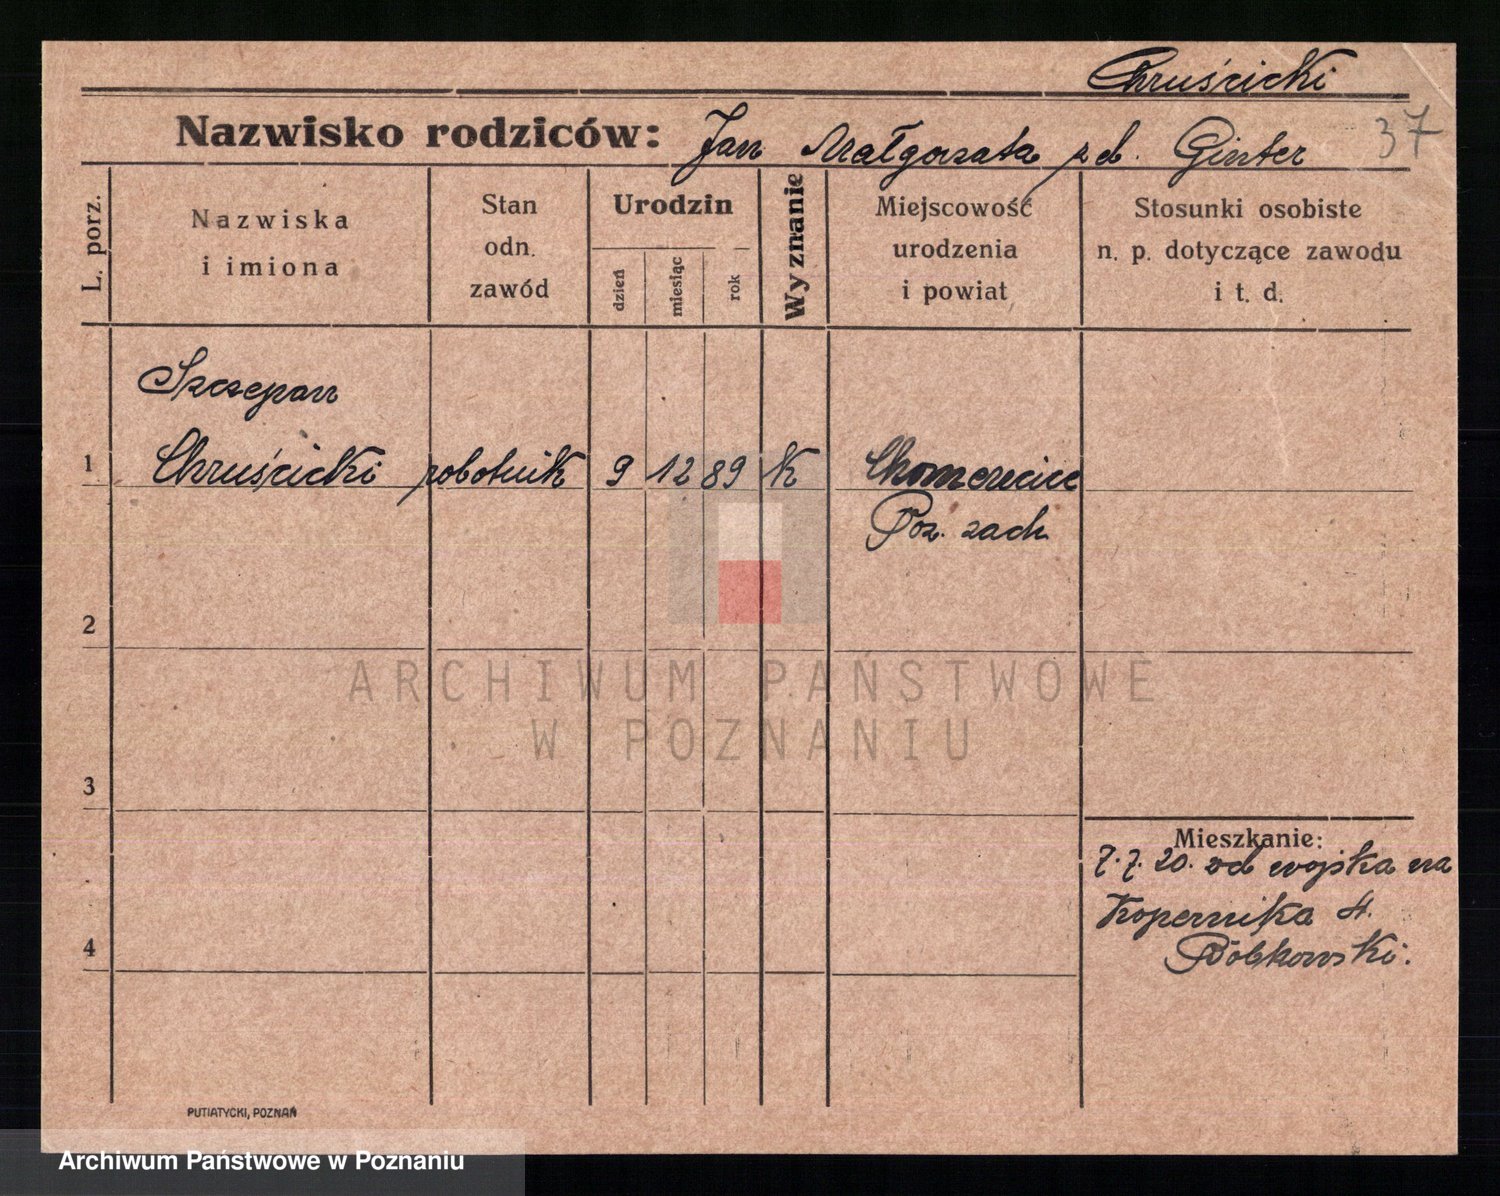 Chruścicki
Nazwisko rodziców: Jan Małgorzata zd. Ginter 37
L. porz.
Nazwiska
i imiona
Stan
odn.
zawód
Urodzin
dzień
miesiąc
rok
Wyznanie
Miejscowość
urodzenia
i powiat
Stosunki osobiste
n. p. dotyczące zawodu
i t. d.
Szczepan
1 Chruścicki robotnik 9 12 89 K Chomencice
Poz. zach
2
3
4
Mieszkanie:
7.7. 20. od wojska na
Kopernika 4.
Bobkowski.
PUTIATYCKI, POZNAŃ
ARCHIWUM PAŃSTWOWE
W POZNANIU
Archiwum Państwowe w Poznaniu